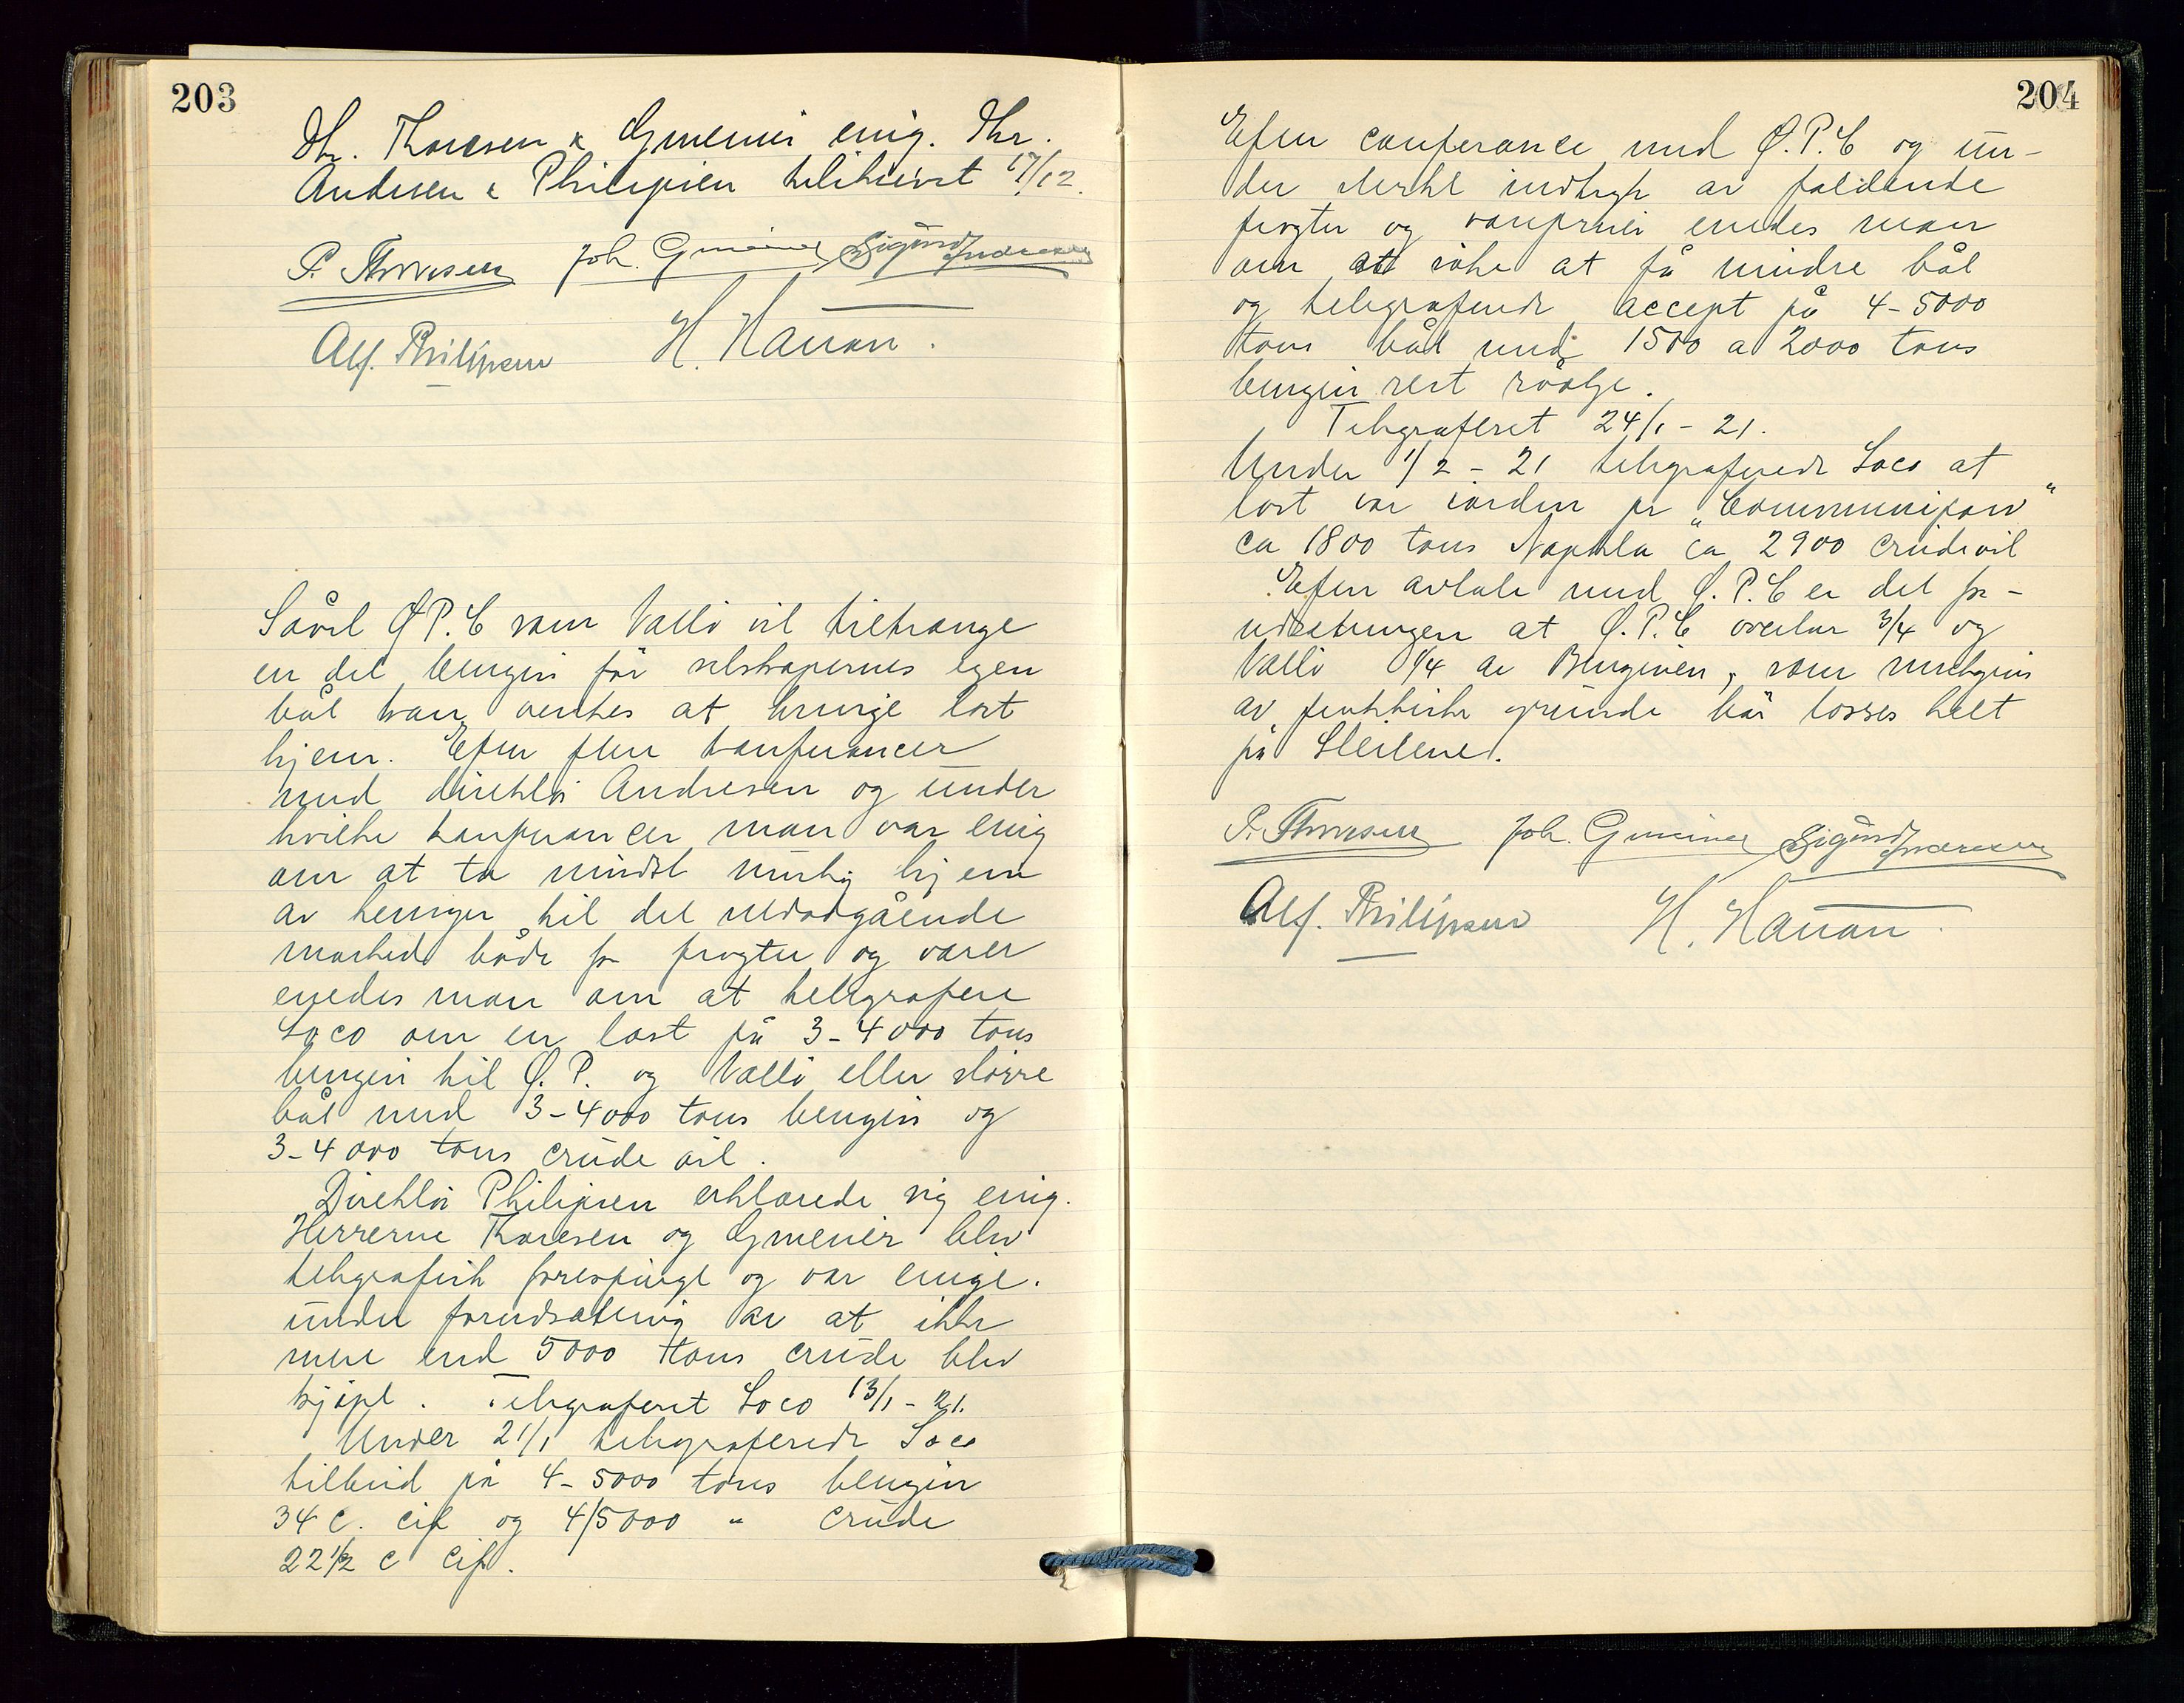 203
Hr. Thoresen & Gmeiner enig. Hr.
Andresen & Philipsen tilskrevet 17/12.
P. Thoresen Joh. Gmeiner Sigurd Andresen
Alf. Philipsen H. Hauan.
Såvel Ø P. C som Vallö vil tiltrænge
en del bengin för selskapernes egen
båt kan ventes at bringe last
hjem. Efter flere konferancer
med direktör Andresen og under
hvilke konferancer man var enig
om at ta mindst mulig hjem
av hensyn til det nedadgående
marked både for fragter og varer
enedes man om at telegrafere
Loco om en last på 3-4000 tons
bengin til Ø. P. og Vallö eller större
båt med 3-4000 tons bengin og
3-4000 tons crude oil.
Direktör Philipsen erklærede sig enig.
Herrerne Thoresen og Gmeiner blev
telegrafisk forespurgt og var enige.
under forudsætning av at ikke
mere end 5000 tons crude blev
kjöpt. Telegraferet Loco 13/1 - 21.
Under 21/1 telegraferede Loco
tilbud på 4-5000 tons bengin
34 c. cif og 4/5000 " crude
22 1/2 c cif.
204
Efter conferance med Ø.P.C og un-
der sterkt indtryk av faldende
fragter og varepriser enedes man
om at söke at få mindre båt
og telegraferede accept på 4-5000
tons båt med 1500 a 2000 tons
bengin rest råolje.
Telegraferet 24/1 - 21.
Under 1/2 - 21 telegraferede Loco at
last var iorden pr "Communipaw"
ca 1800 tons Naphta ca 2900 crudeoil
Efter avtale med Ø.P.C er det for-
udsetningen at Ø.P.C overtar 3/4 og
Vallö 1/4 av Benginen, som muligens
av praktiske grunde bör losses helt
på Steilene.
P. Thoresen Joh. Gmeiner Sigurd Andresen
Alf. Philipsen H. Hauan.